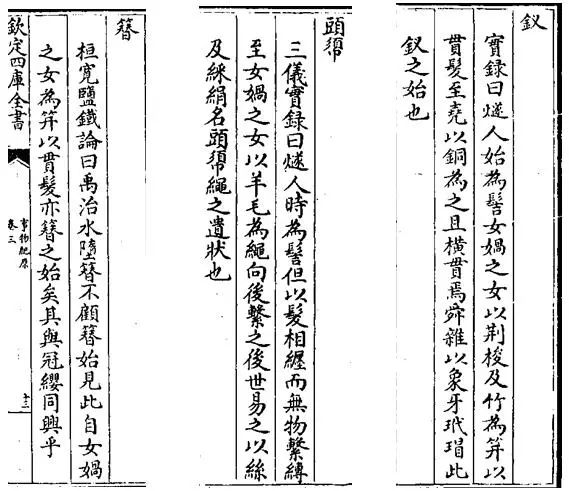 釵
實録曰燧人始為髻女媧之女以荆梭及竹為笄以
貫髮至堯以銅為之且横貫焉舜雜以象牙玳瑁此
釵之始也
頭𢄼
三儀實録曰燧人時為髻但以髮相纒而無物繫縛
至女媧之女以羊毛為繩向後繫之後世易之以絲
及綵絹名頭𢄼繩之遺状也
簪
桓寛鹽鐵論曰禹治水墮簪不顧簪始見此自女媧
之女為笄以貫髮亦簪之始矣其與冠纓同興乎
欽定四庫全書
事物紀原
卷三
十二